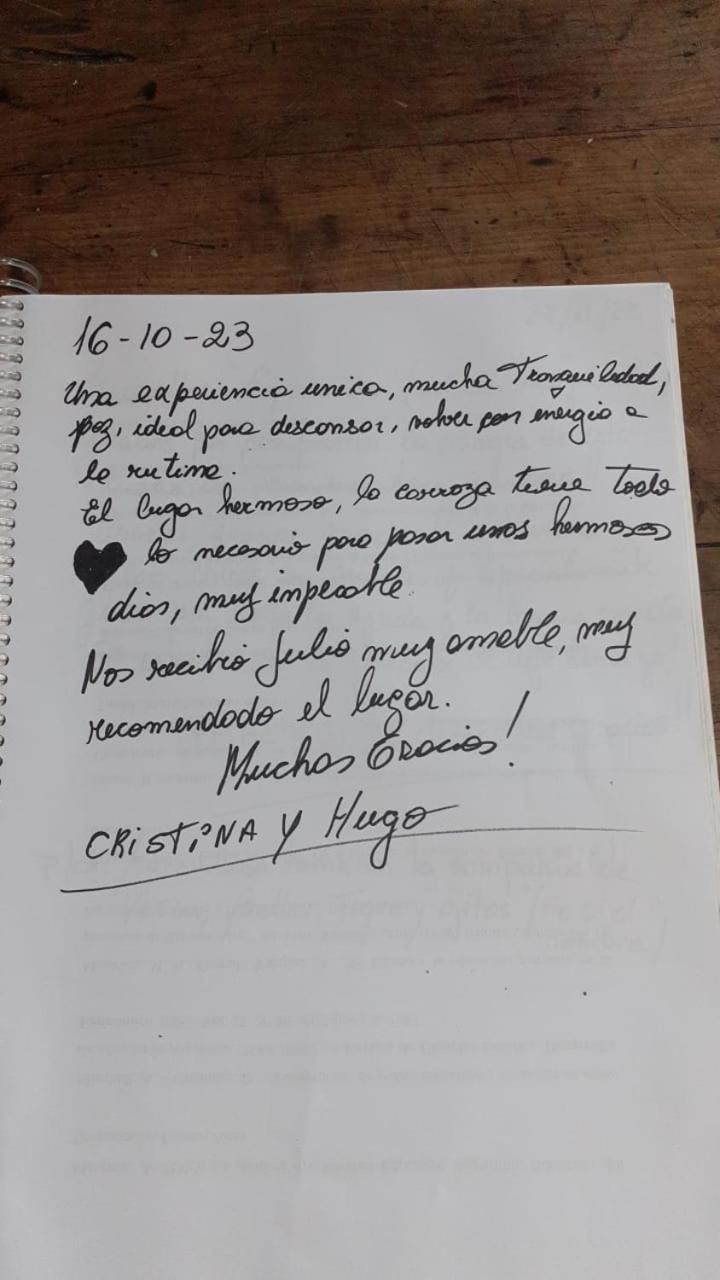 16-10-23
Una experiencia unica, mucha Tranquilidad,
paz, ideal para descansar, volver con energia a
la rutina.
El lugar hermoso, la carroza tiene Todo
lo necesario para pasar unos hermosos
dias, muy impecable.
Nos recibió Julio muy amable, muy
recomendado el lugar.
Muchas Gracias!
CRISTINA Y Hugo